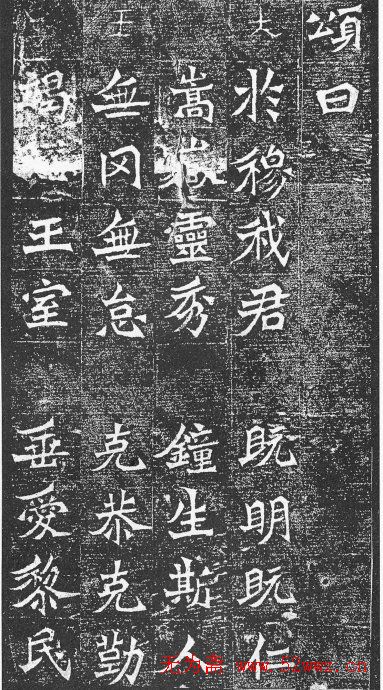 頌曰
於穆我君 既明既仁
嵩嶽靈秀 鐘生斯人
王 無冈無怠 克恭克勤
竭 王室 垂愛黎民
无为斋 www.52wwz.cn